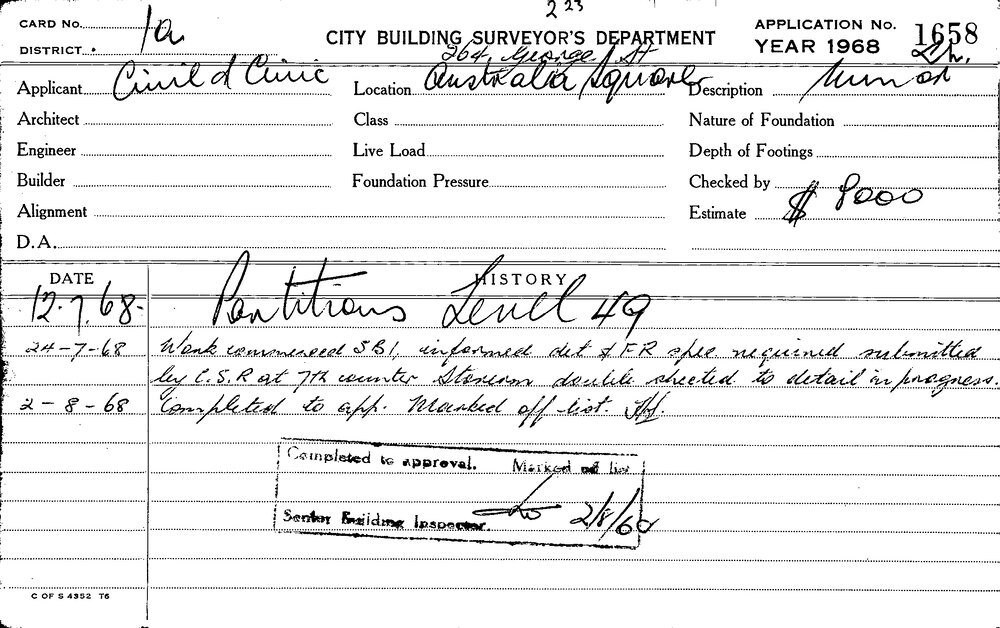 2 23
CARD No.
DISTRICT. 1a
CITY BUILDING SURVEYOR'S DEPARTMENT
APPLICATION No. 1658
YEAR 1968
264 George St
Applicant Civil & Civic Location Australia Square Description
Architect Class Nature of Foundation
Engineer Live Load Depth of Footings
Builder Foundation Pressure Checked by
Alignment Estimate $ 8000
D.A.
DATE HISTORY
12.7.68- Partitions Level 49
24-7-68 Work commenced SBI, informed det & FR spec required submitted
by C.S.R at 7th counter Storeroom double sheeted to detail in progress.
2-8-68 Completed to app. Marked off list.
Completed to approval. Marked off list
Senior Building Inspector. 2/8/68
C OF S 4352 T6